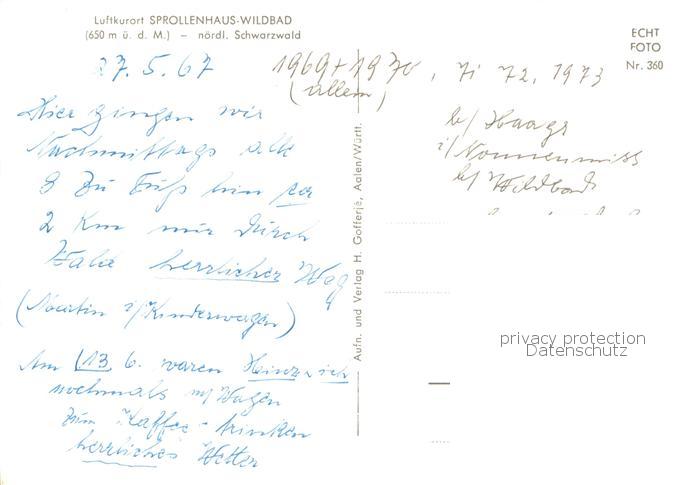 Luftkurort SPROLLENHAUS-WILDBAD
(650 m ü. d. M.) – nördl. Schwarzwald
ECHT
FOTO
Nr. 360
27. 5. 67
1969 + 1970, 71 72, 1973
(allem)
Hier gingen wir
Nachmittags alle
3 zu Fuß hin ca
2 Km nur durch
Wald herrlicher Weg
(Martin i/Kinderwagen)
Am 13. 6. waren Heinz u ich
nochmals m/Wagen
zum Kaffee-trinken
herrliches Wetter
b/ Haags
i/ Nonnenmiss
b/ Wildbad
Aufn. und Verlag H. Gofferjé, Aalen/Württ.
privacy protection
Datenschutz